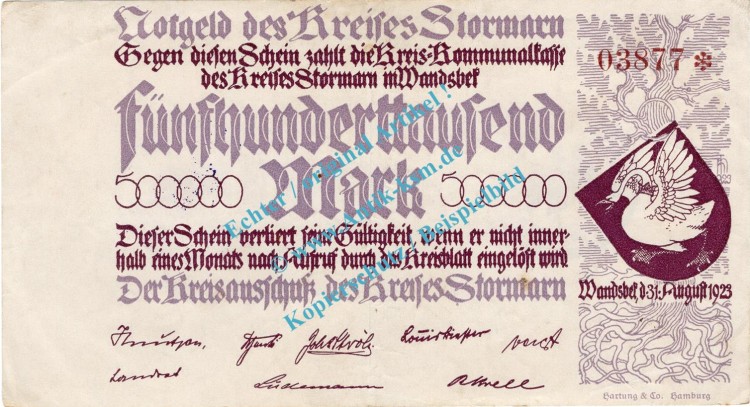 Notgeld des Kreises Stormarn
Gegen diesen Schein zahlt die Kreis-Kommunalkasse
des Kreises Stormarn in Wandsbek
03877 *
fünfhunderttausend
Mark
500000
500000
Dieser Schein verliert seine Gültigkeit, wenn er nicht inner-
halb eines Monats nach Aufruf durch das Kreisblatt eingelöst wird
Der Kreisausschuß des Kreises Stormarn
Wandsbek, d. 31. August 1923
Knutzen,
Landrat
Lüdemann
Hartung & Co. Hamburg
Echter / original Artikel !
© www.Antik-kam.de
Kopierschutz / Beispielbild